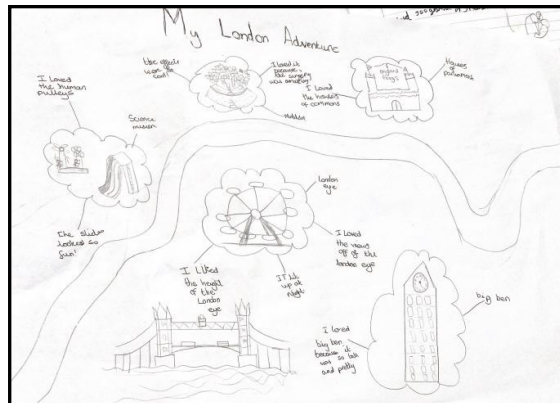 My London Adventure
I Loved
the human
pulleys
Science
The slides
looked so
fun!
I loved it
because
the
was amazing
I Loved
the houses
of commons
Houses
of
London
eye
I Loved
the views
off of the
london eye
I Liked
the height
of the
London
eye
IT lit
up at
night
big ben
I loved
big ben
because it
was so tall
and pretty